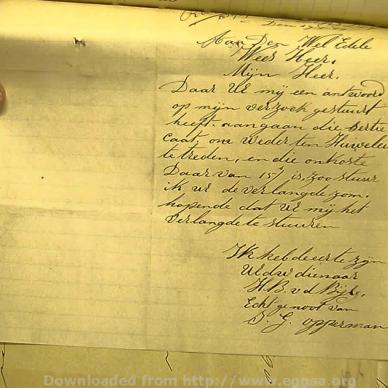 Aan Den Wel Edele
Wees Heer.
Mijn Heer.
Daar UE mij een antwoord
op mijn verzoek gestuurt
heeft. aangaan die sertie
caat, om weder ten Huwelik
te treden, en die onkoste
Daar van 15/ is, zoo stuur
ik UE de verlangde zom.
hopende dat UE mij het
verlangde te stuuren
Ik heb de eer te zyn
UEdw dienaar
H. B. v d Byl,
Echt genoot van
S. G. Opperman
Downloaded from http://www.eggsa.org